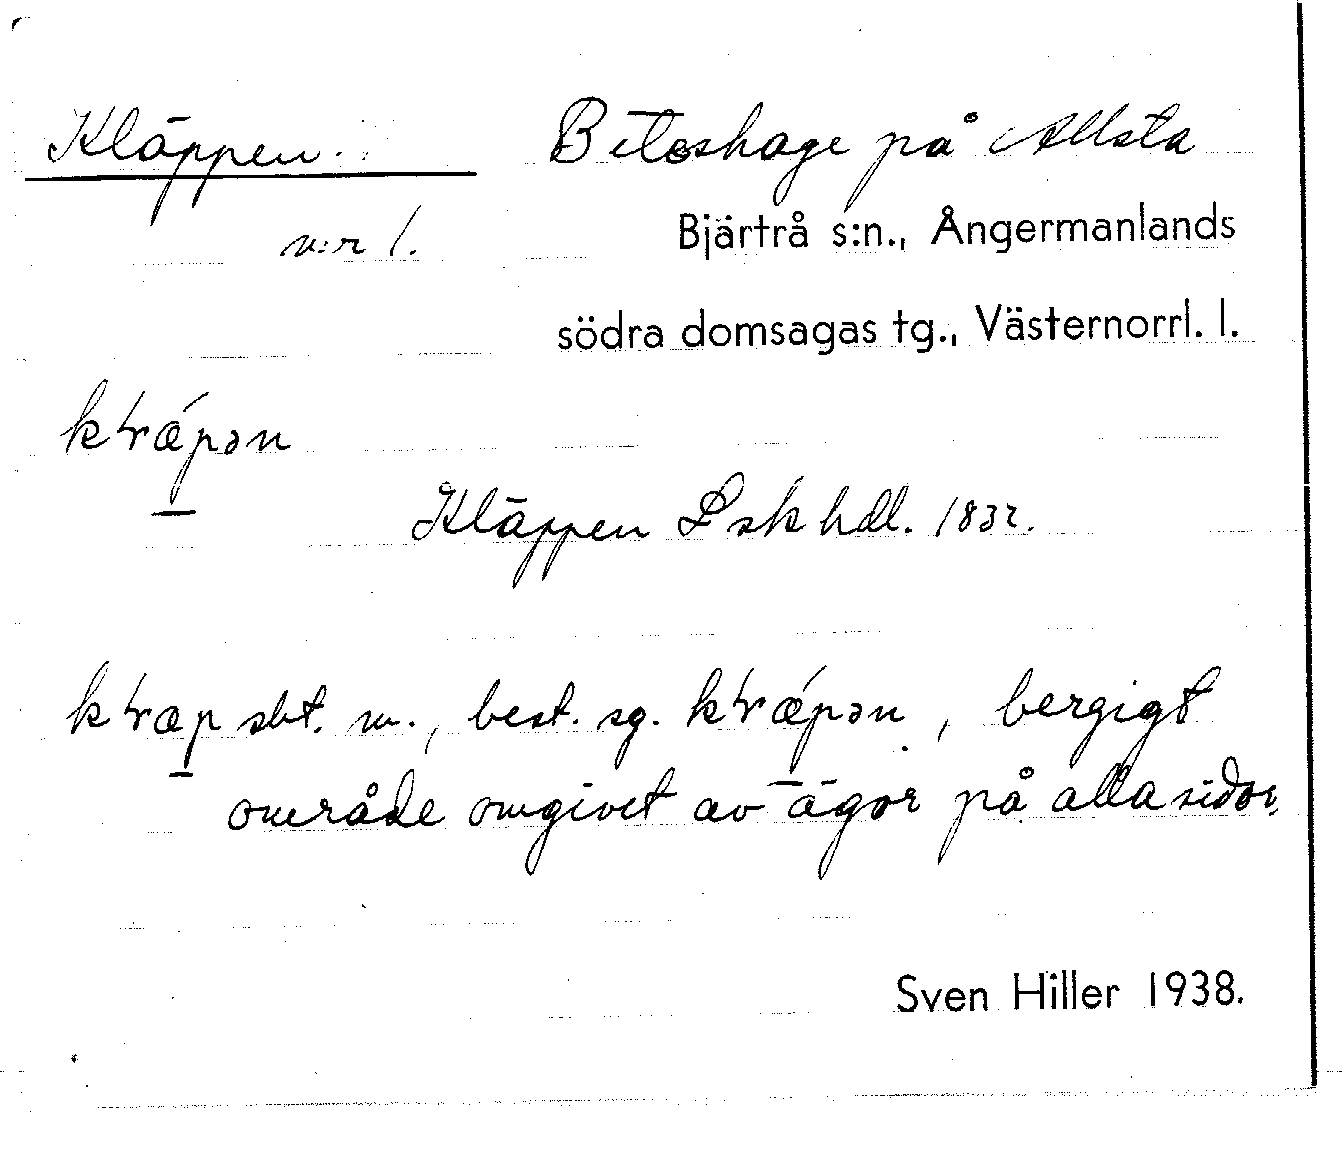 Kläppen. Beteshage på Allsta
n:r 1. Bjärtrå s:n., Ångermanlands
södra domsagas tg., Västernorrl. l.
kɽǽpən
Kläppen Lskhdl. 1832.
kɽæp sbt. m., best. sg. kɽǽpən, bergigt
område omgivet av ägor på alla sidor.
Sven Hiller 1938.